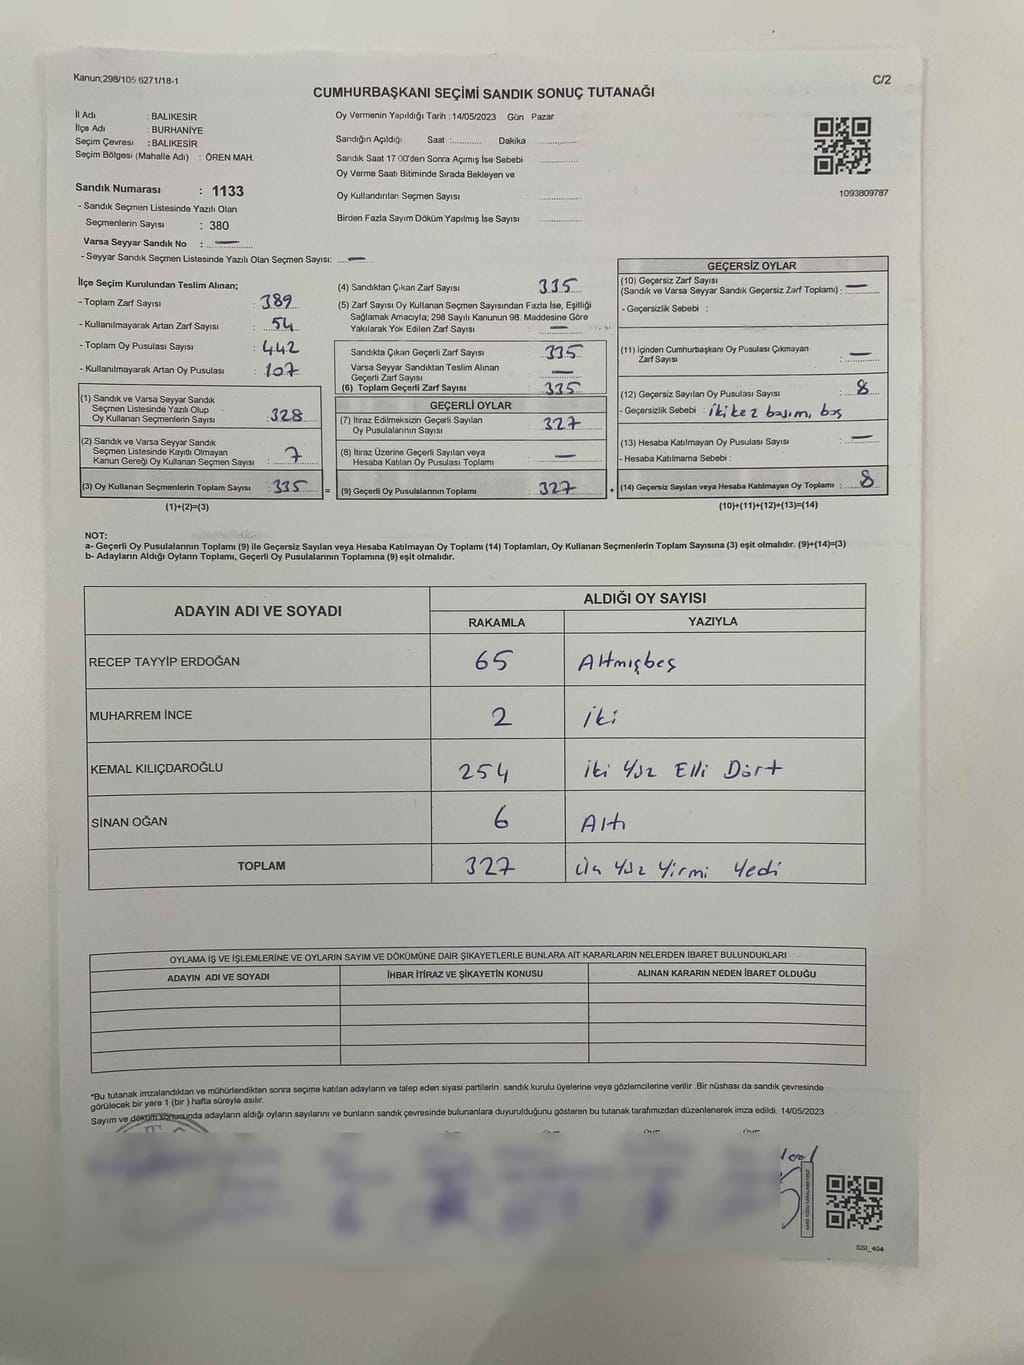 Kanun;298/105 6271/18-1
C/2
CUMHURBAŞKANI SEÇİMİ SANDIK SONUÇ TUTANAĞI
İl Adı : BALIKESİR
İlçe Adı : BURHANİYE
Seçim Çevresi : BALIKESİR
Seçim Bölgesi (Mahalle Adı) : ÖREN MAH.
Sandık Numarası : 1133
- Sandık Seçmen Listesinde Yazılı Olan
Seçmenlerin Sayısı : 380
Varsa Seyyar Sandık No : —
- Seyyar Sandık Seçmen Listesinde Yazılı Olan Seçmen Sayısı: —
Oy Vermenin Yapıldığı Tarih : 14/05/2023 Gün Pazar
Sandığın Açıldığı Saat :........... Dakika ..............
Sandık Saat 17 00'den Sonra Açımış İse Sebebi ..............
Oy Verme Saati Bitiminde Sırada Bekleyen ve
Oy Kullandırılan Seçmen Sayısı ..............
Birden Fazla Sayım Döküm Yapılmış İse Sayısı ..............
1093809787
İlçe Seçim Kurulundan Teslim Alınan;
- Toplam Zarf Sayısı : 389
- Kullanılmayarak Artan Zarf Sayısı : 54
- Toplam Oy Pusulası Sayısı : 442
- Kullanılmayarak Artan Oy Pusulası : 107
(1) Sandık ve Varsa Seyyar Sandık
Seçmen Listesinde Yazılı Olup
Oy Kullanan Seçmenlerin Sayısı : 328
(2) Sandık ve Varsa Seyyar Sandık
Seçmen Listesinde Kayıtlı Olmayan
Kanun Gereği Oy Kullanan Seçmen Sayısı : 7
(3) Oy Kullanan Seçmenlerin Toplam Sayısı : 335 =
(1)+(2)=(3)
(4) Sandıktan Çıkan Zarf Sayısı 335
(5) Zarf Sayısı Oy Kullanan Seçmen Sayısından Fazla İse, Eşitliği
Sağlamak Amacıyla; 298 Sayılı Kanunun 98. Maddesine Göre
Yakılarak Yok Edilen Zarf Sayısı : —
Sandıkta Çıkan Geçerli Zarf Sayısı 335
Varsa Seyyar Sandıktan Teslim Alınan
Geçerli Zarf Sayısı —
(6) Toplam Geçerli Zarf Sayısı 335
GEÇERLİ OYLAR
(7) İtiraz Edilmeksizin Geçerli Sayılan
Oy Pusulalarının Sayısı 327
(8) İtiraz Üzerine Geçerli Sayılan veya
Hesaba Katılan Oy Pusulası Toplamı —
(9) Geçerli Oy Pusulalarının Toplamı 327 +
GEÇERSİZ OYLAR
(10) Geçersiz Zarf Sayısı
(Sandık ve Varsa Seyyar Sandık Geçersiz Zarf Toplamı) : —
- Geçersizlik Sebebi :
(11) İçinden Cumhurbaşkanı Oy Pusulası Çıkmayan
Zarf Sayısı : —
(12) Geçersiz Sayılan Oy Pusulası Sayısı : 8
- Geçersizlik Sebebi : iki kez basım, boş
(13) Hesaba Katılmayan Oy Pusulası Sayısı : —
- Hesaba Katılmama Sebebi :
(14) Geçersiz Sayılan veya Hesaba Katılmayan Oy Toplamı : 8
(10)+(11)+(12)+(13)=(14)
NOT:
a- Geçerli Oy Pusulalarının Toplamı (9) ile Geçersiz Sayılan veya Hesaba Katılmayan Oy Toplamı (14) Toplamları, Oy Kullanan Seçmenlerin Toplam Sayısına (3) eşit olmalıdır. (9)+(14)=(3)
b- Adayların Aldığı Oyların Toplamı, Geçerli Oy Pusulalarının Toplamına (9) eşit olmalıdır.
ADAYIN ADI VE SOYADI ALDIĞI OY SAYISI
RAKAMLA YAZIYLA
RECEP TAYYİP ERDOĞAN 65 Altmışbeş
MUHARREM İNCE 2 iki
KEMAL KILIÇDAROĞLU 254 iki Yüz Elli Dört
SİNAN OĞAN 6 Altı
TOPLAM 327 Üç Yüz Yirmi Yedi
OYLAMA İŞ VE İŞLEMLERİNE VE OYLARIN SAYIM VE DÖKÜMÜNE DAİR ŞİKAYETLERLE BUNLARA AİT KARARLARIN NELERDEN İBARET BULUNDUKLARI
ADAYIN ADI VE SOYADI İHBAR İTİRAZ VE ŞİKAYETİN KONUSU ALINAN KARARIN NEDEN İBARET OLDUĞU
*Bu tutanak imzalandıktan ve mühürlendikten sonra seçime katılan adayların ve talep eden siyasi partilerin sandık kurulu üyelerine veya gözlemcilerine verilir .Bir nüshası da sandık çevresinde
görülecek bir yere 1 (bir ) hafta süreyle asılır.
Sayım ve döküm sonucunda adayların aldığı oyların sayılarını ve bunların sandık çevresinde bulunanlara duyurulduğunu gösteren bu tutanak tarafımızdan düzenlenerek imza edildi. 14/05/2023
SSI_404